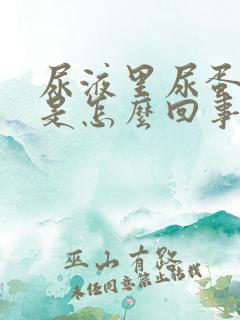 尿液里尿蛋
是怎麼回事
巫山有路
未任同意禁止转载